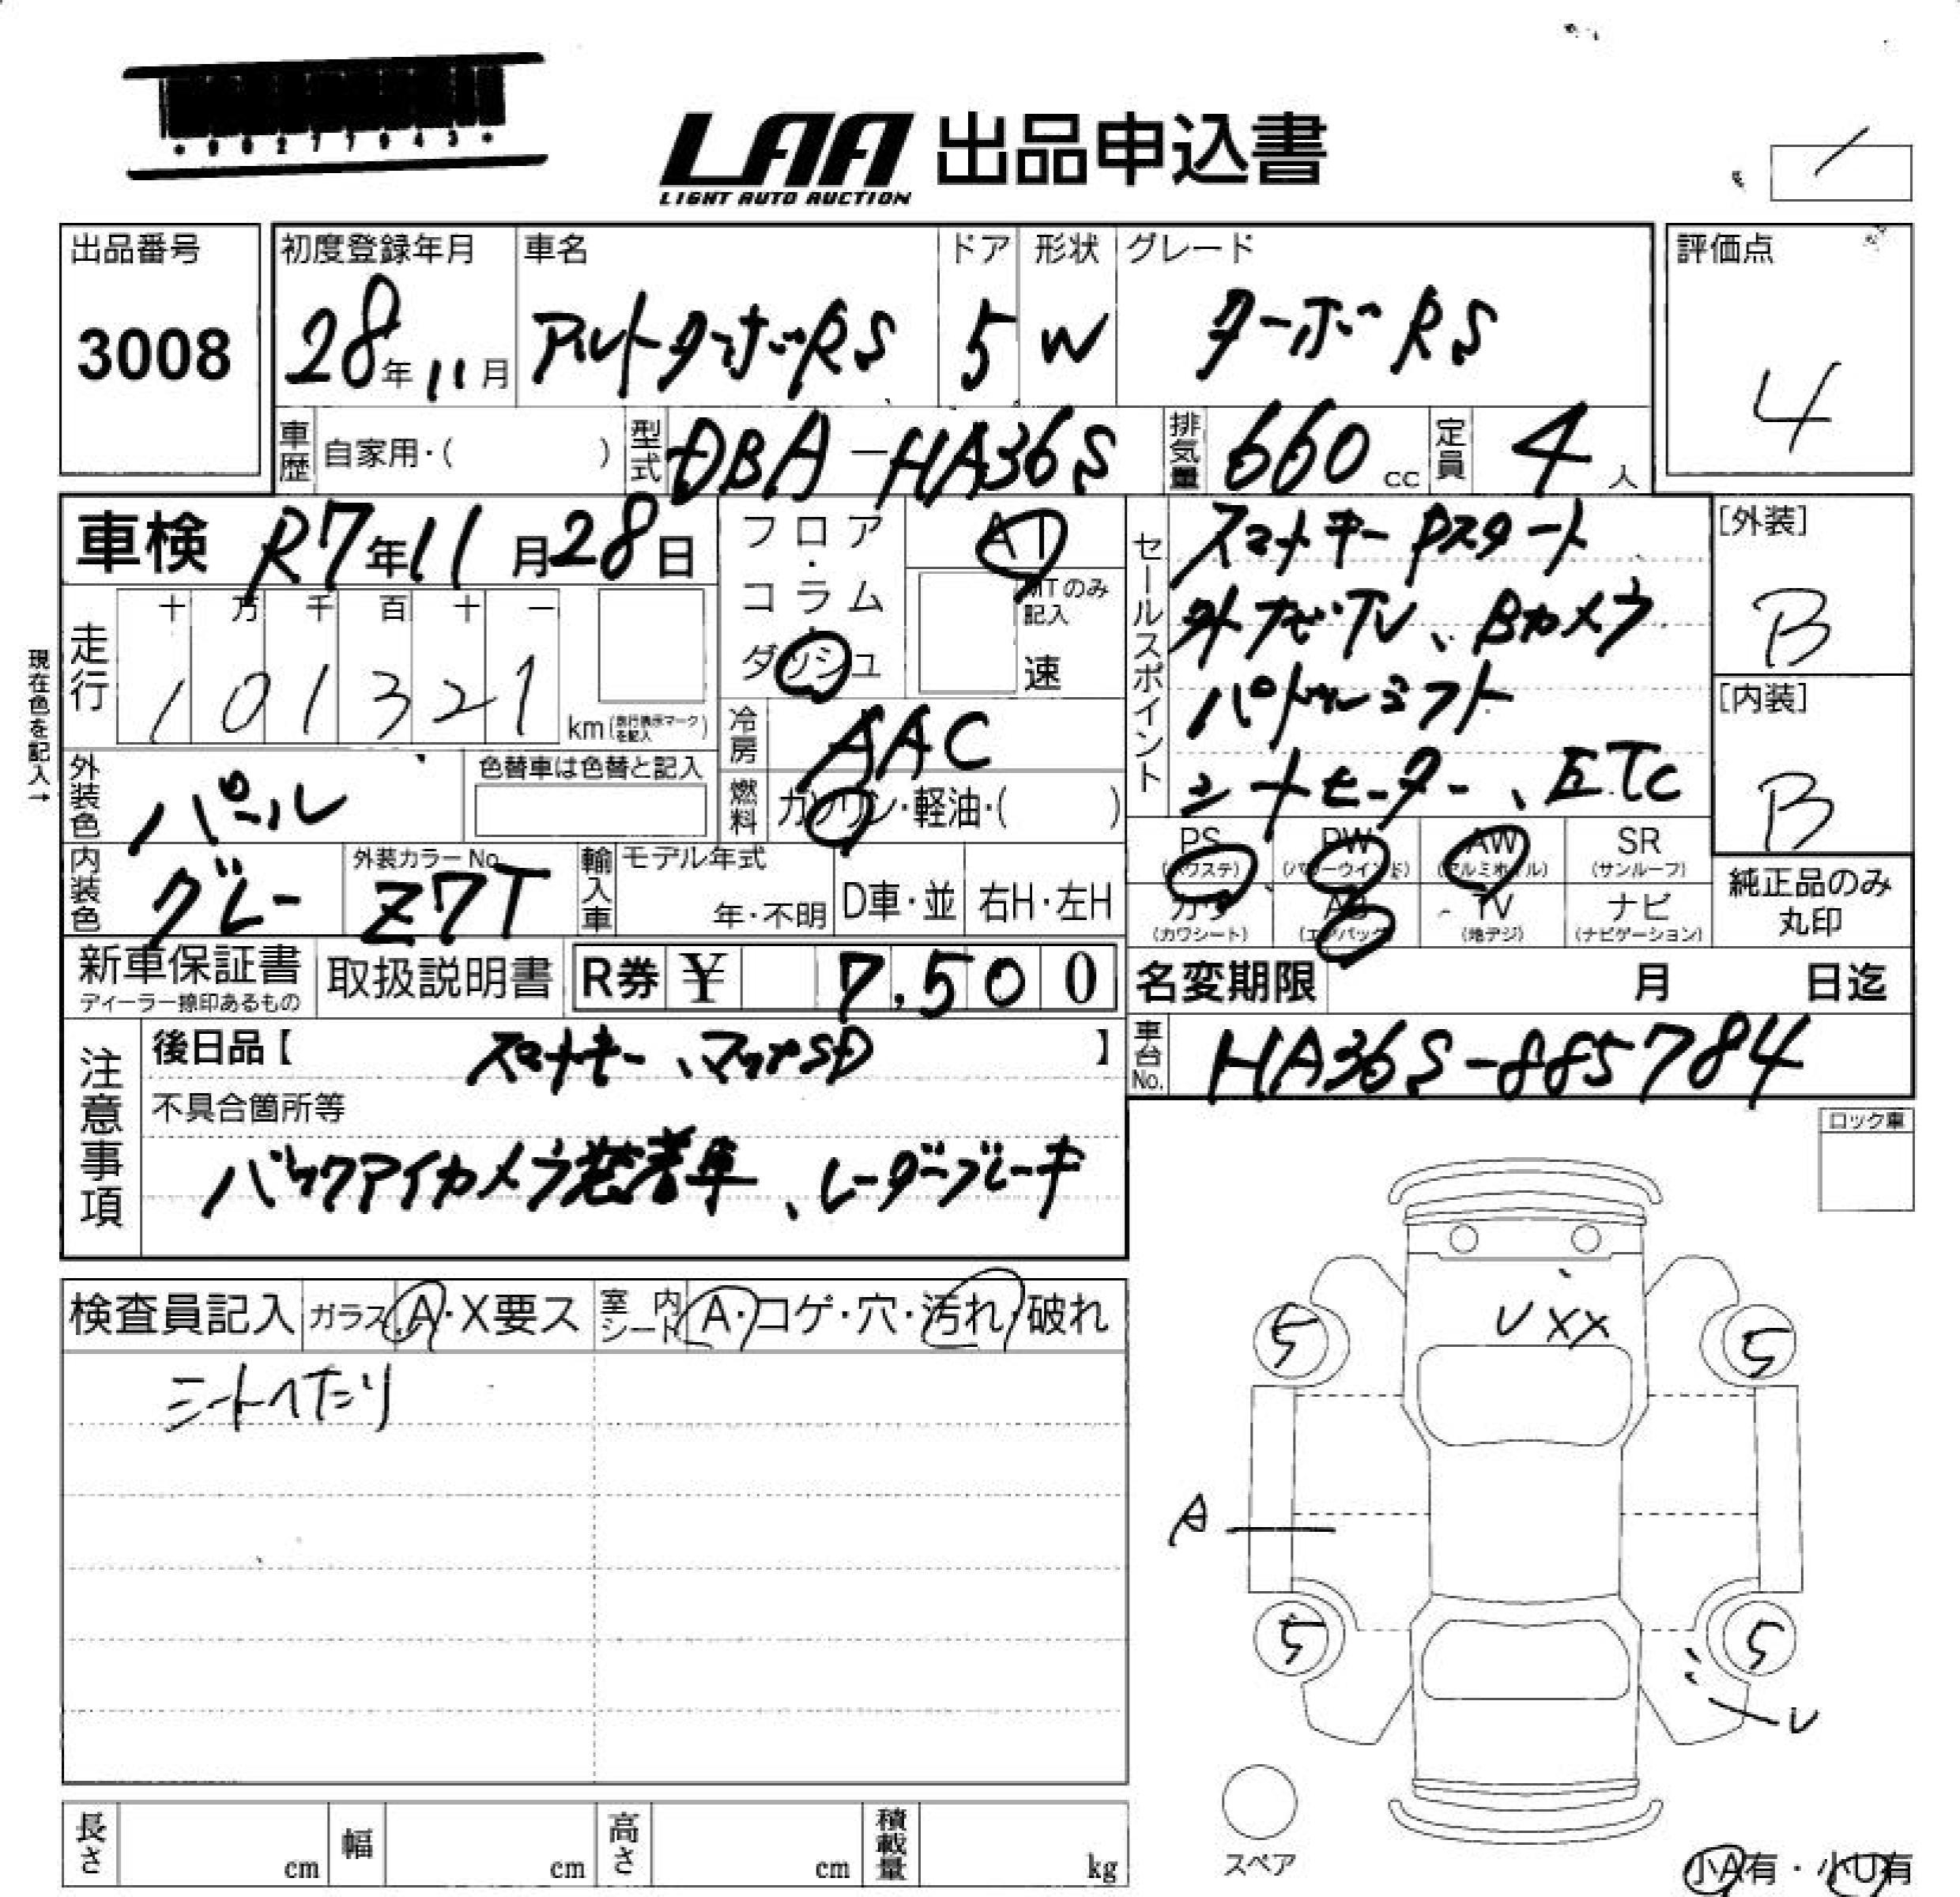 *00277043*
LAA 出品申込書
LIGHT AUTO AUCTION
出品番号
3008
初度登録年月
28年11月
車名
アルトターボRS
ドア
5
形状
W
グレード
ターボRS
評価点
4
車歴 自家用・( )
型式 DBA-HA36S
排気量 660 cc
定員 4 人
車検 R7年11月28日
フロア・コラム・ダッシュ
AT
MTのみ記入
速
セールスポイント
スマートキー Pスタート
外ナビTV、Bカメラ
パドルシフト
シートヒーター、ETC
[外装]
B
[内装]
B
現在色を記入→
走行
十 万 千 百 十 一
1 0 1 3 2 1
km(走行表示マークを記入)
冷房 AAC
燃料 ガソリン・軽油・( )
外装色 パール
色替車は色替と記入
内装色 グレー
外装カラーNo.
Z7T
輸入車
モデル年式
年・不明
D車・並
右H・左H
PS
(パワステ)
PW
(パワーウインド)
AW
(アルミホイル)
SR
(サンルーフ)
カワ
(カワシート)
AB
(エアバック)
TV
(地デジ)
ナビ
(ナビゲーション)
純正品のみ
丸印
新車保証書
ディーラー捺印あるもの
取扱説明書
R券 ¥ 7,500
名変期限 月 日迄
注意事項
後日品【 スマートキー、マップSD 】
不具合箇所等
バックアイカメラ装着車、レーダーブレーキ
車台No. HA36S-885784
ロック車
検査員記入
ガラス A・X要ス
室内シート A・コゲ・穴・汚れ・破れ
シートへたり
U XX
5 5
A
5 5
U
スペア
小A有・小U有
長さ cm
幅 cm
高さ cm
積載量 kg